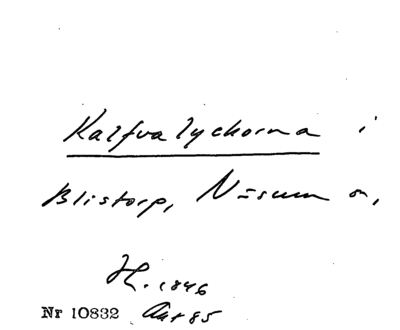 Kalfvalyckorna i
Blistorp, Näsum s,
H. 1846
Nr 10832 Akt 85